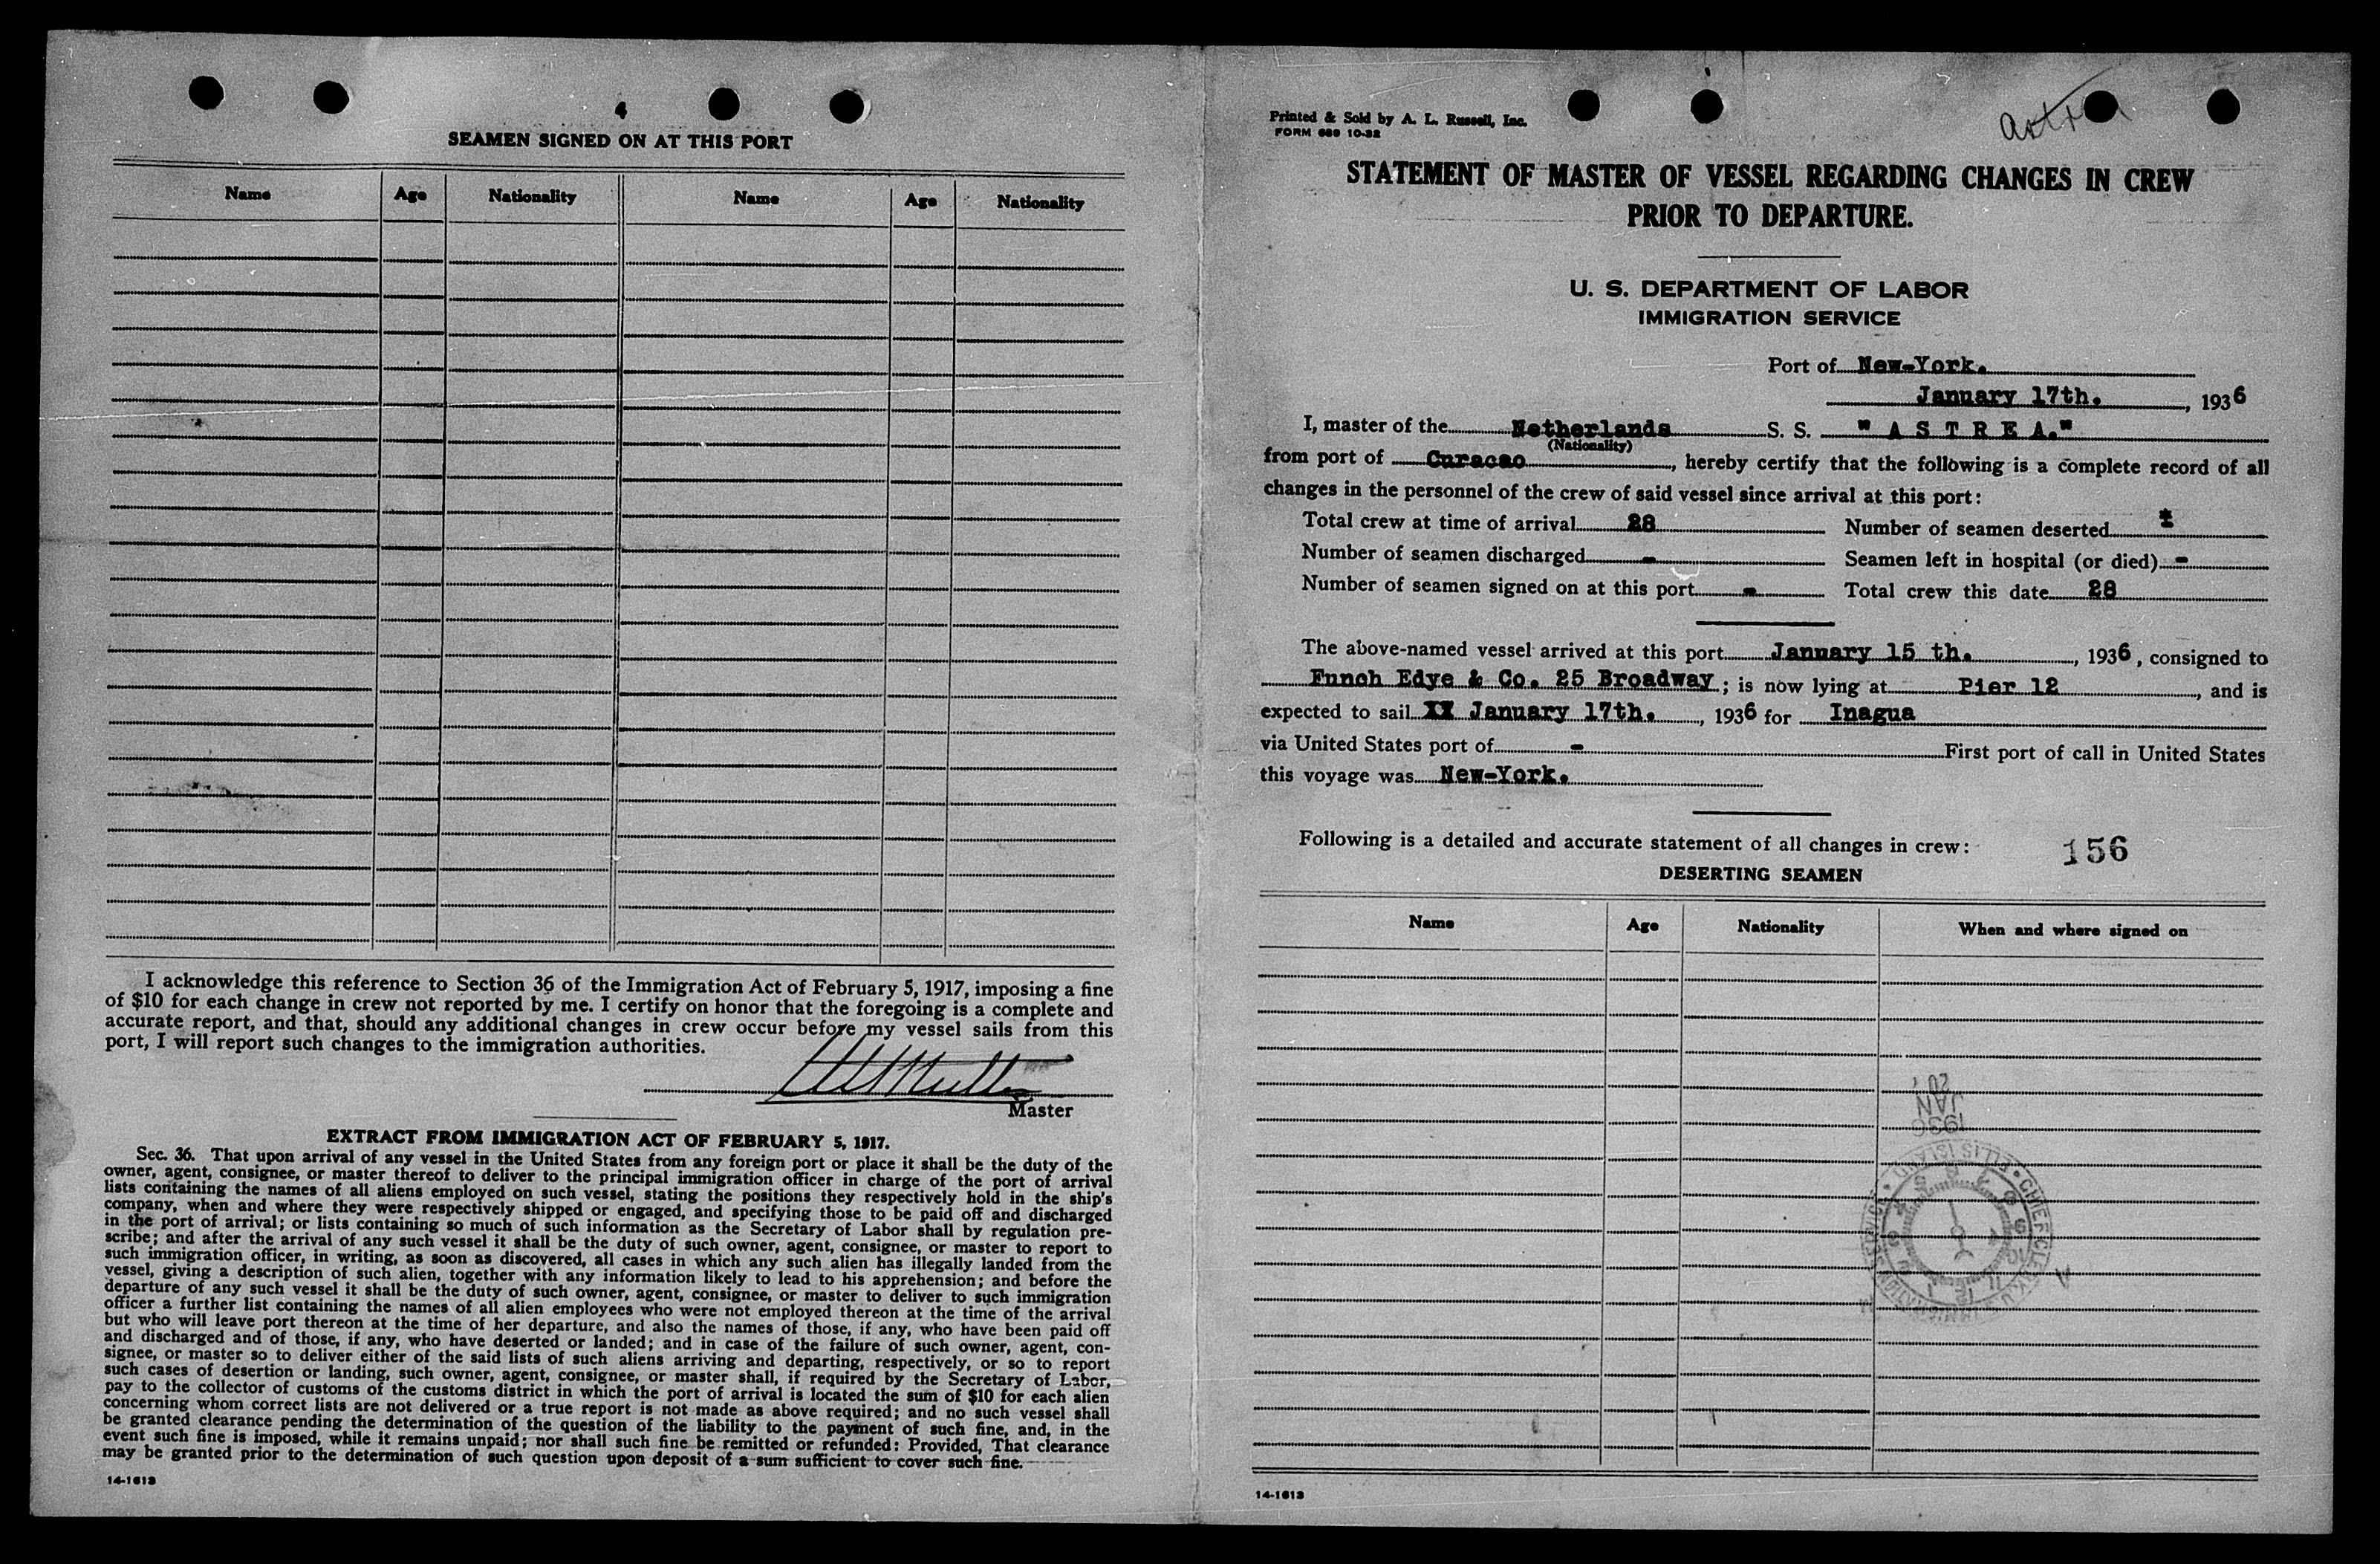 4
SEAMEN SIGNED ON AT THIS PORT
Name Age Nationality Name Age Nationality
I acknowledge this reference to Section 36 of the Immigration Act of February 5, 1917, imposing a fine
of $10 for each change in crew not reported by me. I certify on honor that the foregoing is a complete and
accurate report, and that, should any additional changes in crew occur before my vessel sails from this
port, I will report such changes to the immigration authorities.
Master
EXTRACT FROM IMMIGRATION ACT OF FEBRUARY 5, 1917.
Sec. 36. That upon arrival of any vessel in the United States from any foreign port or place it shall be the duty of the
owner, agent, consignee, or master thereof to deliver to the principal immigration officer in charge of the port of arrival
lists containing the names of all aliens employed on such vessel, stating the positions they respectively hold in the ship's
company, when and where they were respectively shipped or engaged, and specifying those to be paid off and discharged
in the port of arrival; or lists containing so much of such information as the Secretary of Labor shall by regulation pre-
scribe; and after the arrival of any such vessel it shall be the duty of such owner, agent, consignee, or master to report to
such immigration officer, in writing, as soon as discovered, all cases in which any such alien has illegally landed from the
vessel, giving a description of such alien, together with any information likely to lead to his apprehension; and before the
departure of any such vessel it shall be the duty of such owner, agent, consignee, or master to deliver to such immigration
officer a further list containing the names of all alien employees who were not employed thereon at the time of the arrival
but who will leave port thereon at the time of her departure, and also the names of those, if any, who have been paid off
and discharged and of those, if any, who have deserted or landed; and in case of the failure of such owner, agent, con-
signee, or master so to deliver either of the said lists of such aliens arriving and departing, respectively, or so to report
such cases of desertion or landing, such owner, agent, consignee, or master shall, if required by the Secretary of Labor,
pay to the collector of customs of the customs district in which the port of arrival is located the sum of $10 for each alien
concerning whom correct lists are not delivered or a true report is not made as above required; and no such vessel shall
be granted clearance pending the determination of the question of the liability to the payment of such fine, and, in the
event such fine is imposed, while it remains unpaid; nor shall such fine be remitted or refunded: Provided, That clearance
may be granted prior to the determination of such question upon deposit of a sum sufficient to cover such fine.
14-1613
Printed & Sold by A. L. Russell, Inc.
FORM 689 10-32
STATEMENT OF MASTER OF VESSEL REGARDING CHANGES IN CREW
PRIOR TO DEPARTURE.
U. S. DEPARTMENT OF LABOR
IMMIGRATION SERVICE
Port of New-York.
January 17th., 1936
I, master of the Netherlands S. S. "ASTREA."
(Nationality)
from port of Curacao, hereby certify that the following is a complete record of all
changes in the personnel of the crew of said vessel since arrival at this port:
Total crew at time of arrival 28 Number of seamen deserted
Number of seamen discharged - Seamen left in hospital (or died) -
Number of seamen signed on at this port - Total crew this date 28
The above-named vessel arrived at this port January 15 th., 1936, consigned to
Funch Edye & Co. 25 Broadway; is now lying at Pier 12, and is
expected to sail XX January 17th., 1936 for Inagua
via United States port of - First port of call in United States
this voyage was New-York.
Following is a detailed and accurate statement of all changes in crew: 156
DESERTING SEAMEN
Name Age Nationality When and where signed on
JAN 20, 1936
14-1613